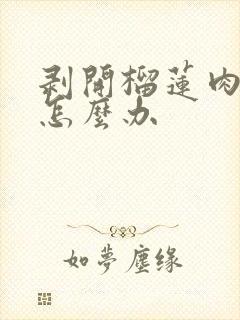 剥開榴蓮肉
怎麼办
如夢塵缘